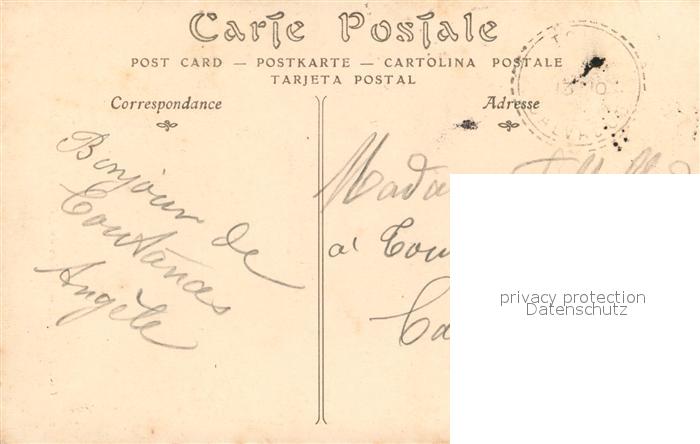 Carte Postale
POST CARD — POSTKARTE — CARTOLINA POSTALE
TARJETA POSTAL
Correspondance
Adresse
CALVADOS
Bonjour de
Coutances
Angèle
Mada
à Tou
Ca
privacy protection
Datenschutz